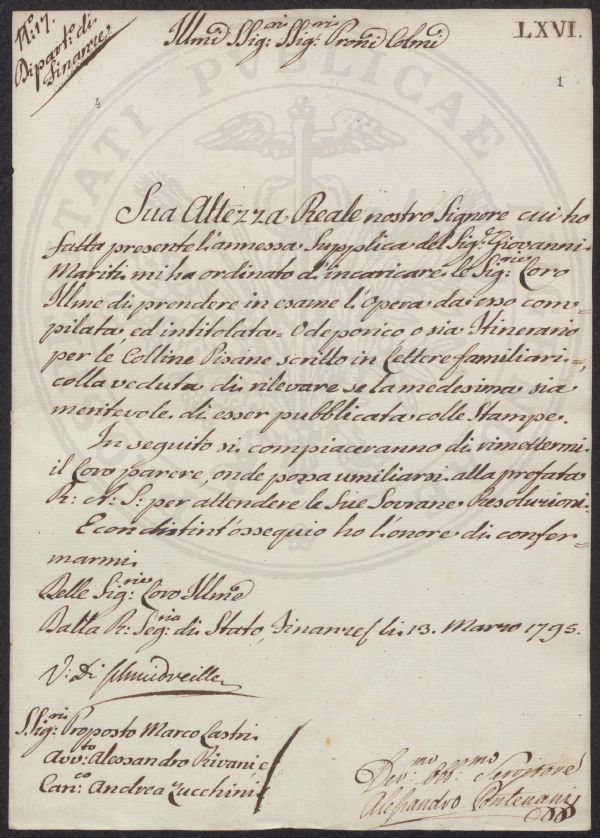 N.o 17.
Dipart.to di
Finanze
Illmi SSig.ri SSig.ri Proni Colmi
LXVI.
4
1
PUBLICAE
Sua Altezza Reale nostro Signore cui ho
fatta presente l'annessa Supplica del Sig.e Giovanni
Mariti mi ha ordinato d'incaricare le Sig.rie Loro
Illme di prendere in esame l'Opera da esso com-
pilata, ed intitolata = Odeporico o sia Itinerario
per le Colline Pisane scritto in Lettere familiari =,
colla veduta di rilevare se la medesima sia
meritevole di esser pubblicata colle Stampe.
In seguito si compiaceranno di rimettermi
il Loro parere, onde possa umiliarsi alla prefata
R: A: S: per attendere le Sue Sovrane Resoluzioni.
E con distint'ossequio ho l'onore di confer-
marmi
Delle Sig.rie Loro Illme
Dalla R: Seg.ria di Stato, Finanze li 13. Marzo 1795.
V: Di Schmidveiller
SSig.ri Proposto Marco Lastri
Avv.to Alessandro Rivani, e
Can.co Andrea Zucchini
Dev.mo Obb.mo Servitore
Alessandro Pontenani